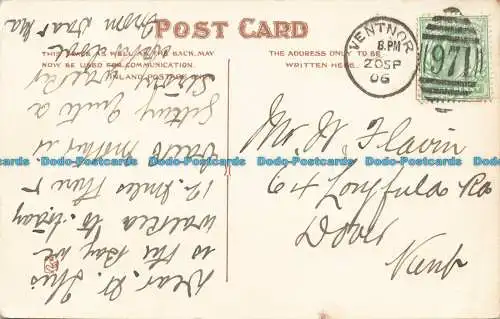 POST CARD
THIS SPACE, AS WELL AS THE BACK, MAY
NOW BE USED FOR COMMUNICATION.
INLAND POSTAGE ONLY
THE ADDRESS ONLY TO BE
WRITTEN HERE.
VENTNOR
8.PM
20 SP
06
971
Dear D. This
is the Bay we
walked to today
12 miles there &
back Mother is
getting quite a
strong
From Dear Ma
Mr. W. Flavin
64 Longfield Rd
Dover
Kent
Dodo-Postcards Dodo-Postcards Dodo-Postcards Dodo-Postcards Dodo-Postcards